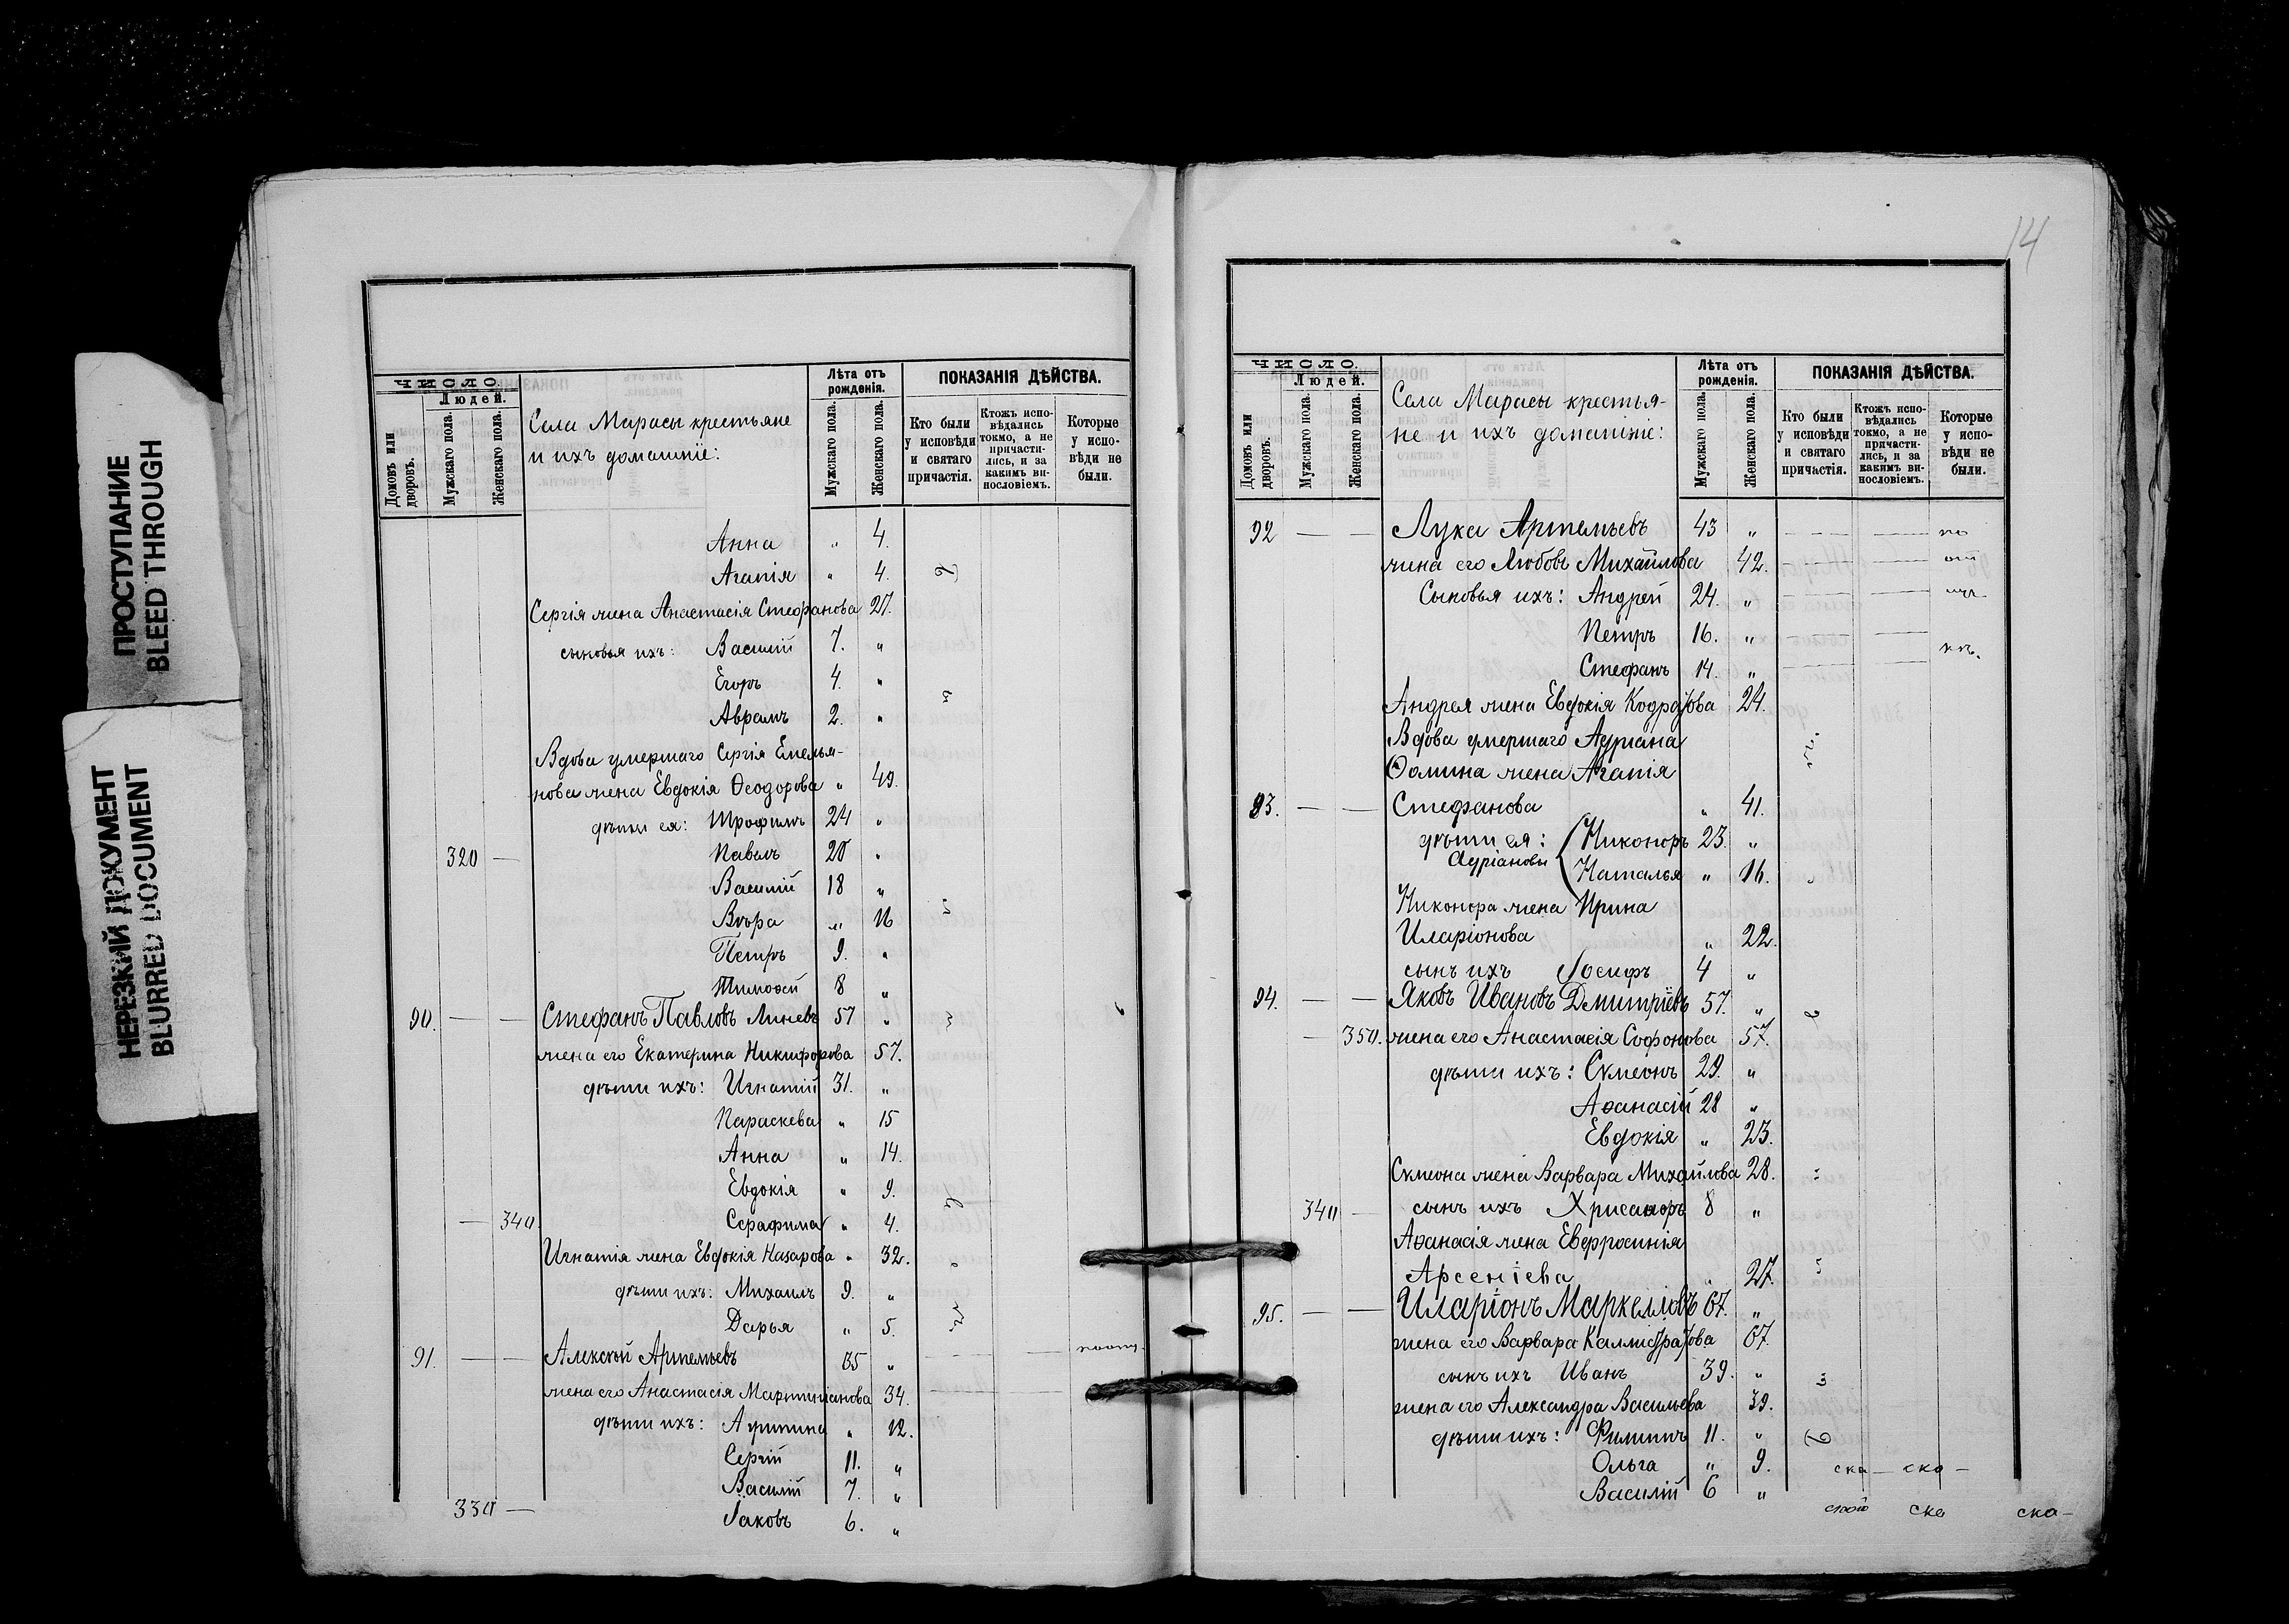 ПРОСТУПАНИЕ
BLEED THROUGH
НЕРЕЗКИЙ ДОКУМЕНТ
BLURRED DOCUMENT
ЧИСЛО.
Людей.
Домовъ или дворовъ.
Мужскаго пола.
Женскаго пола.
Села Марасы крестьяне
и ихъ домашніе:
Лѣта отъ рожденія.
Мужскаго пола.
Женскаго пола.
ПОКАЗАНІЯ ДѢЙСТВА.
Кто были у исповѣди и святаго причастія.
Ктожъ исповѣдались токмо, а не причастились, и за какимъ винословіемъ.
Которые у исповѣди не были.
Анна " 4.
Агапія " 4.
Сергія жена Анастасія Стефанова 27.
сыновья ихъ: Василій 7. "
Егоръ 4. "
Аврамъ 2. "
Вдова умершаго Сергія Емелья-
нова жена Евдокія Ѳеодорова " 49.
дѣти ея: Трофимъ 24 "
320 — Павелъ 20 "
Василій 18 "
Вѣра " 16
Петръ 9. "
Тимоѳей 8 "
90. — — Стефанъ Павловъ Линевъ 57 "
жена его Екатерина Никифорова 57.
дѣти ихъ: Игнатій 31. "
Параскева " 15
Анна " 14.
Евдокія " 9.
— 340 Серафима " 4.
Игнатія жена Евдокія Назарова " 32.
дѣти ихъ: Михаилъ 9. "
Дарья " 5.
91. — — Алексѣй Артемьевъ 35 "
жена его Анастасія Мартиніанова 34.
дѣти ихъ: " 12.
Сергій 11. "
Василій 7. "
330 — Іаковъ 6. "
14
ЧИСЛО.
Людей.
Домовъ или дворовъ.
Мужскаго пола.
Женскаго пола.
Села Марасы крестья-
не и ихъ домашніе:
Лѣта отъ рожденія.
Мужскаго пола.
Женскаго пола.
ПОКАЗАНІЯ ДѢЙСТВА.
Кто были у исповѣди и святаго причастія.
Ктожъ исповѣдались токмо, а не причастились, и за какимъ винословіемъ.
Которые у исповѣди не были.
92 — — Лука Артемьевъ 43 " — — — по
жена его Любовь Михайлова 42.
Сыновья ихъ: Андрей 24. "
Петръ 16. "
Стефанъ 14. "
Андрея жена Евдокія Кодратова 24.
Вдова умершаго Адріана
Ѳомина жена Агапія
93. — — Стефанова " 41.
дѣти ея: Никоноръ 23. "
Адріановы Наталья " 16.
Никонора жена Ирина
Иларіонова " 22.
сынъ ихъ Іосифъ 4 "
94. — — Яковъ Ивановъ Димитріевъ 57. "
— 350. жена его Анастасія Софонова 57.
дѣти ихъ: Симеонъ 29. "
Аѳанасій 28 "
Евдокія " 23.
Симеона жена Варвара Михайлова 28.
340 — сынъ ихъ Хрисанѳъ 8 "
Аѳанасія жена Евфросинія
Арсеніева " 27.
95. — — Иларіонъ Маркелловъ 67. "
жена его Варвара Каллистратова 67.
сынъ ихъ Иванъ 39. "
жена его Александра Васильева 39.
дѣти ихъ: Филиппъ 11. "
Ольга " 9. ска — ска —
Василій 6 " ска ска —